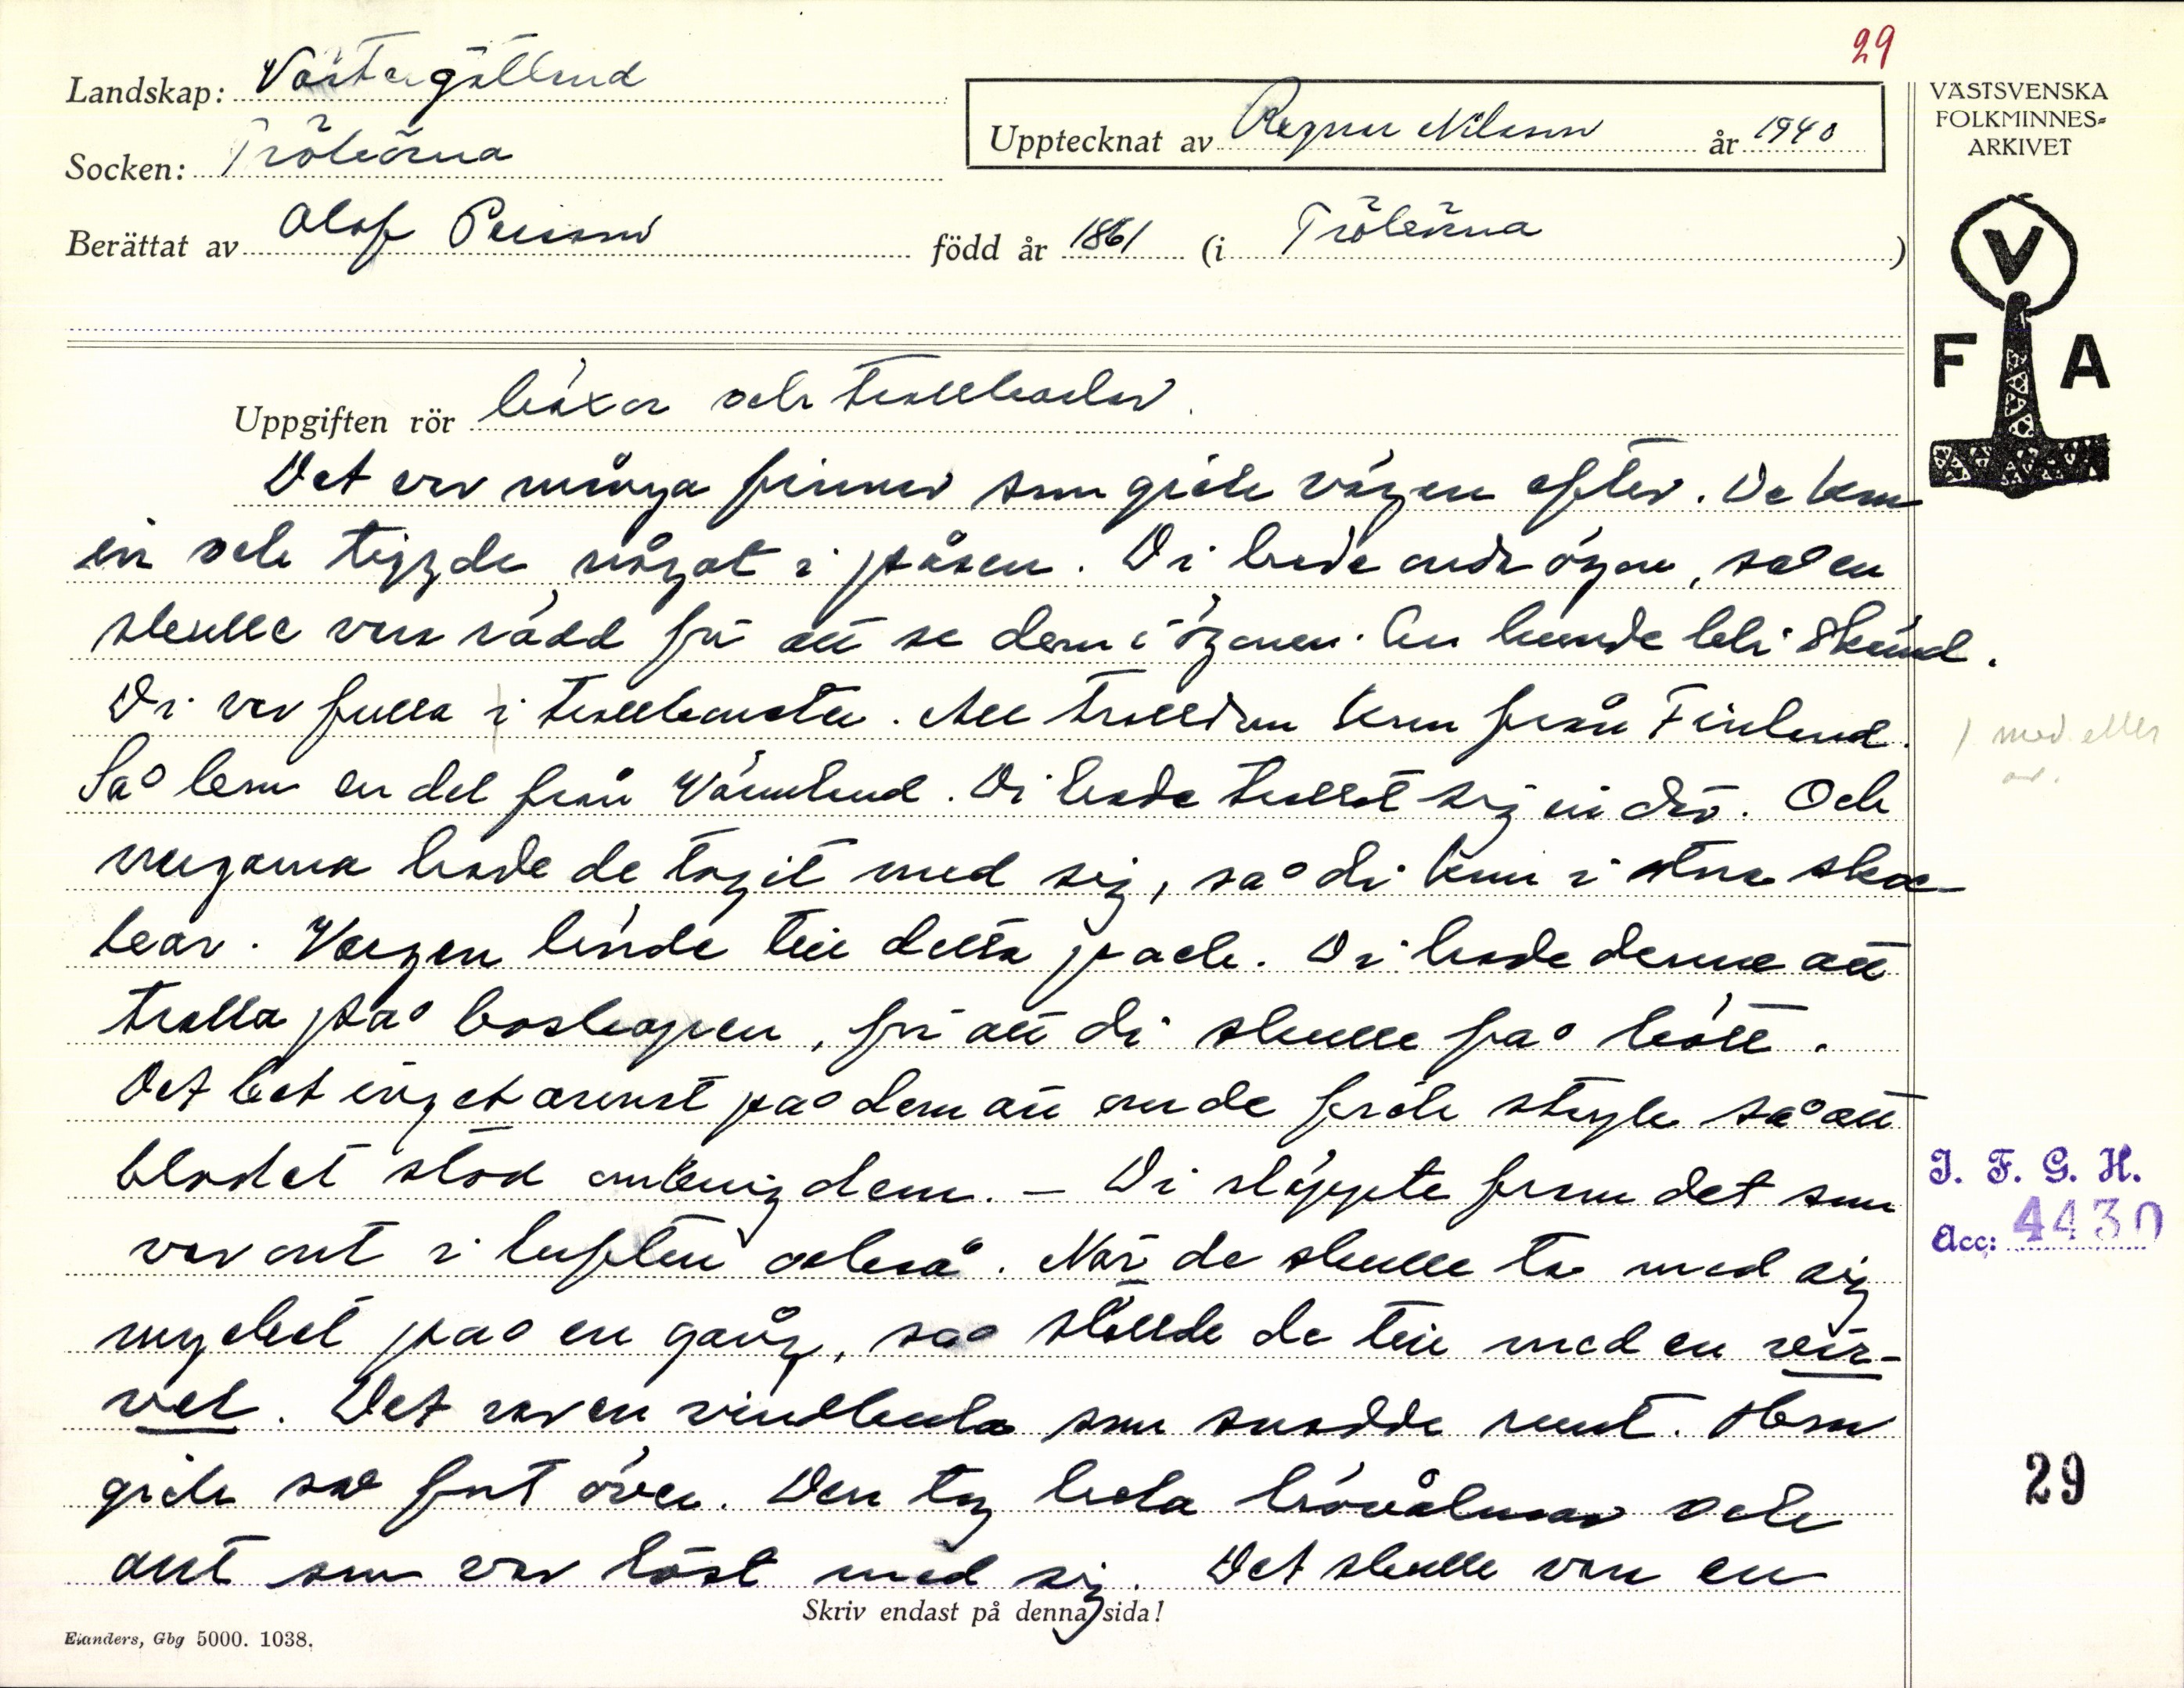 29
Landskap: Västergötland
Socken: Trökörna
Upptecknat av Ragnar Nilsson år 1940
Berättat av Olof Persson född år 1861 (i Trökörna)
VÄSTSVENSKA
FOLKMINNES=
ARKIVET
V
F A
Uppgiften rör häxor och trollkarlar.
Det var många finnar som gick vägen efter. De kom
in och tiggde något i påsen. Di hade onda ögon, så en
skulle vara rädd för att se dem i ögonen. En kunde bli skämd.
Di var fulla i trollkonster. All trolldom kom från Finland.
) med eller
av.
Så kom en del från Värmland. Di hade trollat sig in där. Och
vargarna hade de tagit med sig, så di kom i stora ska-
ror. Vargen hörde till detta pack. Di hade denne att
trolla på boskapen, för att di skulle få kött.
Det bet inget annat på dem än om de fick stryk så att
blodet stod omkring dem. – Di släppte fram det som
var ont i luften också. När de skulle ta med sig
mycket på en gång, så ställde de till med en vir-
vel. Det var en vindkula som snodde runt. Hon
gick så fort över. Den tog hela hövålmar och
allt som var löst med sig. Det skulle vara en
I. F. G. H.
Acc: 4430
29
Skriv endast på denna sida!
Elanders, Gbg 5000. 1038.